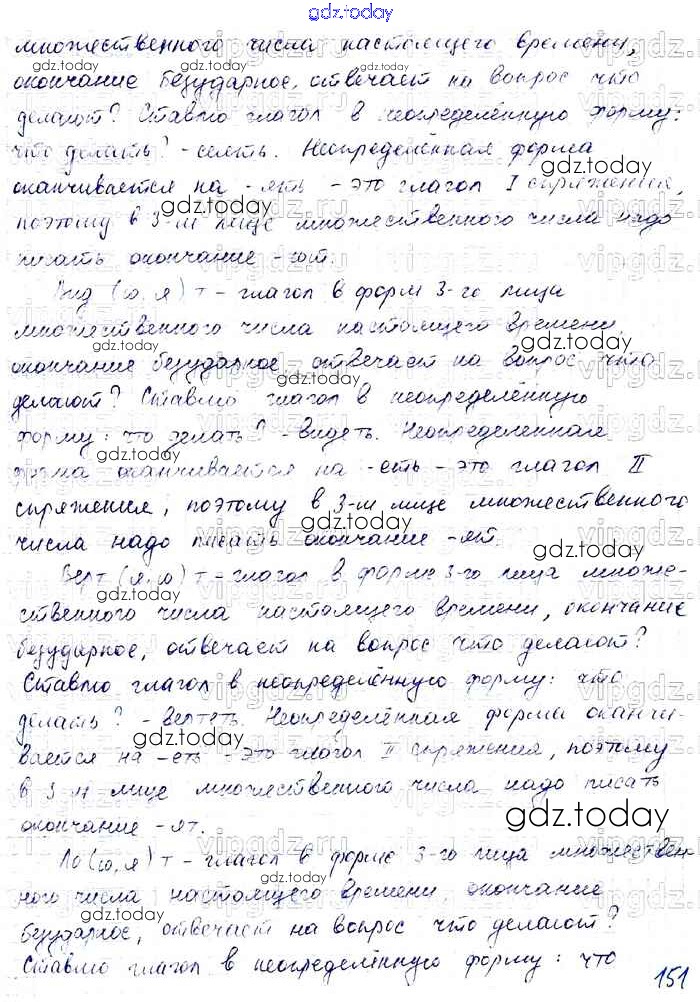 gdz.today
множественного числа настоящего времени,
окончание безударное, отвечает на вопрос что
делают? Ставлю глагол в неопределённую форму:
что делать? - сеять. Неопределённая форма
gdz.today
оканчивается на -ять - это глагол I спряжения,
gdz.today
поэтому в 3-м лице множественного числа надо
писать окончание -ют.
gdz.today
Вид (ю, я) т - глагол в форм 3-го лица
множественного числа настоящего времени,
gdz.today
окончание безударное, отвечает на вопрос что
gdz.today
делают? Ставлю глагол в неопределённую
форму: что делать? - видеть. Неопределенная
gdz.today
форма оканчивается на -еть - это глагол II
спряжения, поэтому в 3-м лице множественного
gdz.today
числа надо писать окончание -ят.
gdz.today
Верт (я, ю) т - глагол в форме 3-го лица множе-
ственного числа настоящего времени, окончание
безударное, отвечает на вопрос что делают?
Ставлю глагол в неопределённую форму: что
gdz.today
делать? - вертеть. Неопределённая форма оканчи-
gdz.today
вается на -еть - это глагол II спряжения, поэтому
в 3-м лице множественного числа надо писать
gdz.today
окончание -ят.
Ло (ю, я) т - глагол в форме 3-го лица множествен-
ного числа настоящего времени, окончание
gdz.today
безударное, отвечает на вопрос что делают?
gdz.today
Ставлю глагол в неопределённую форму: что
151